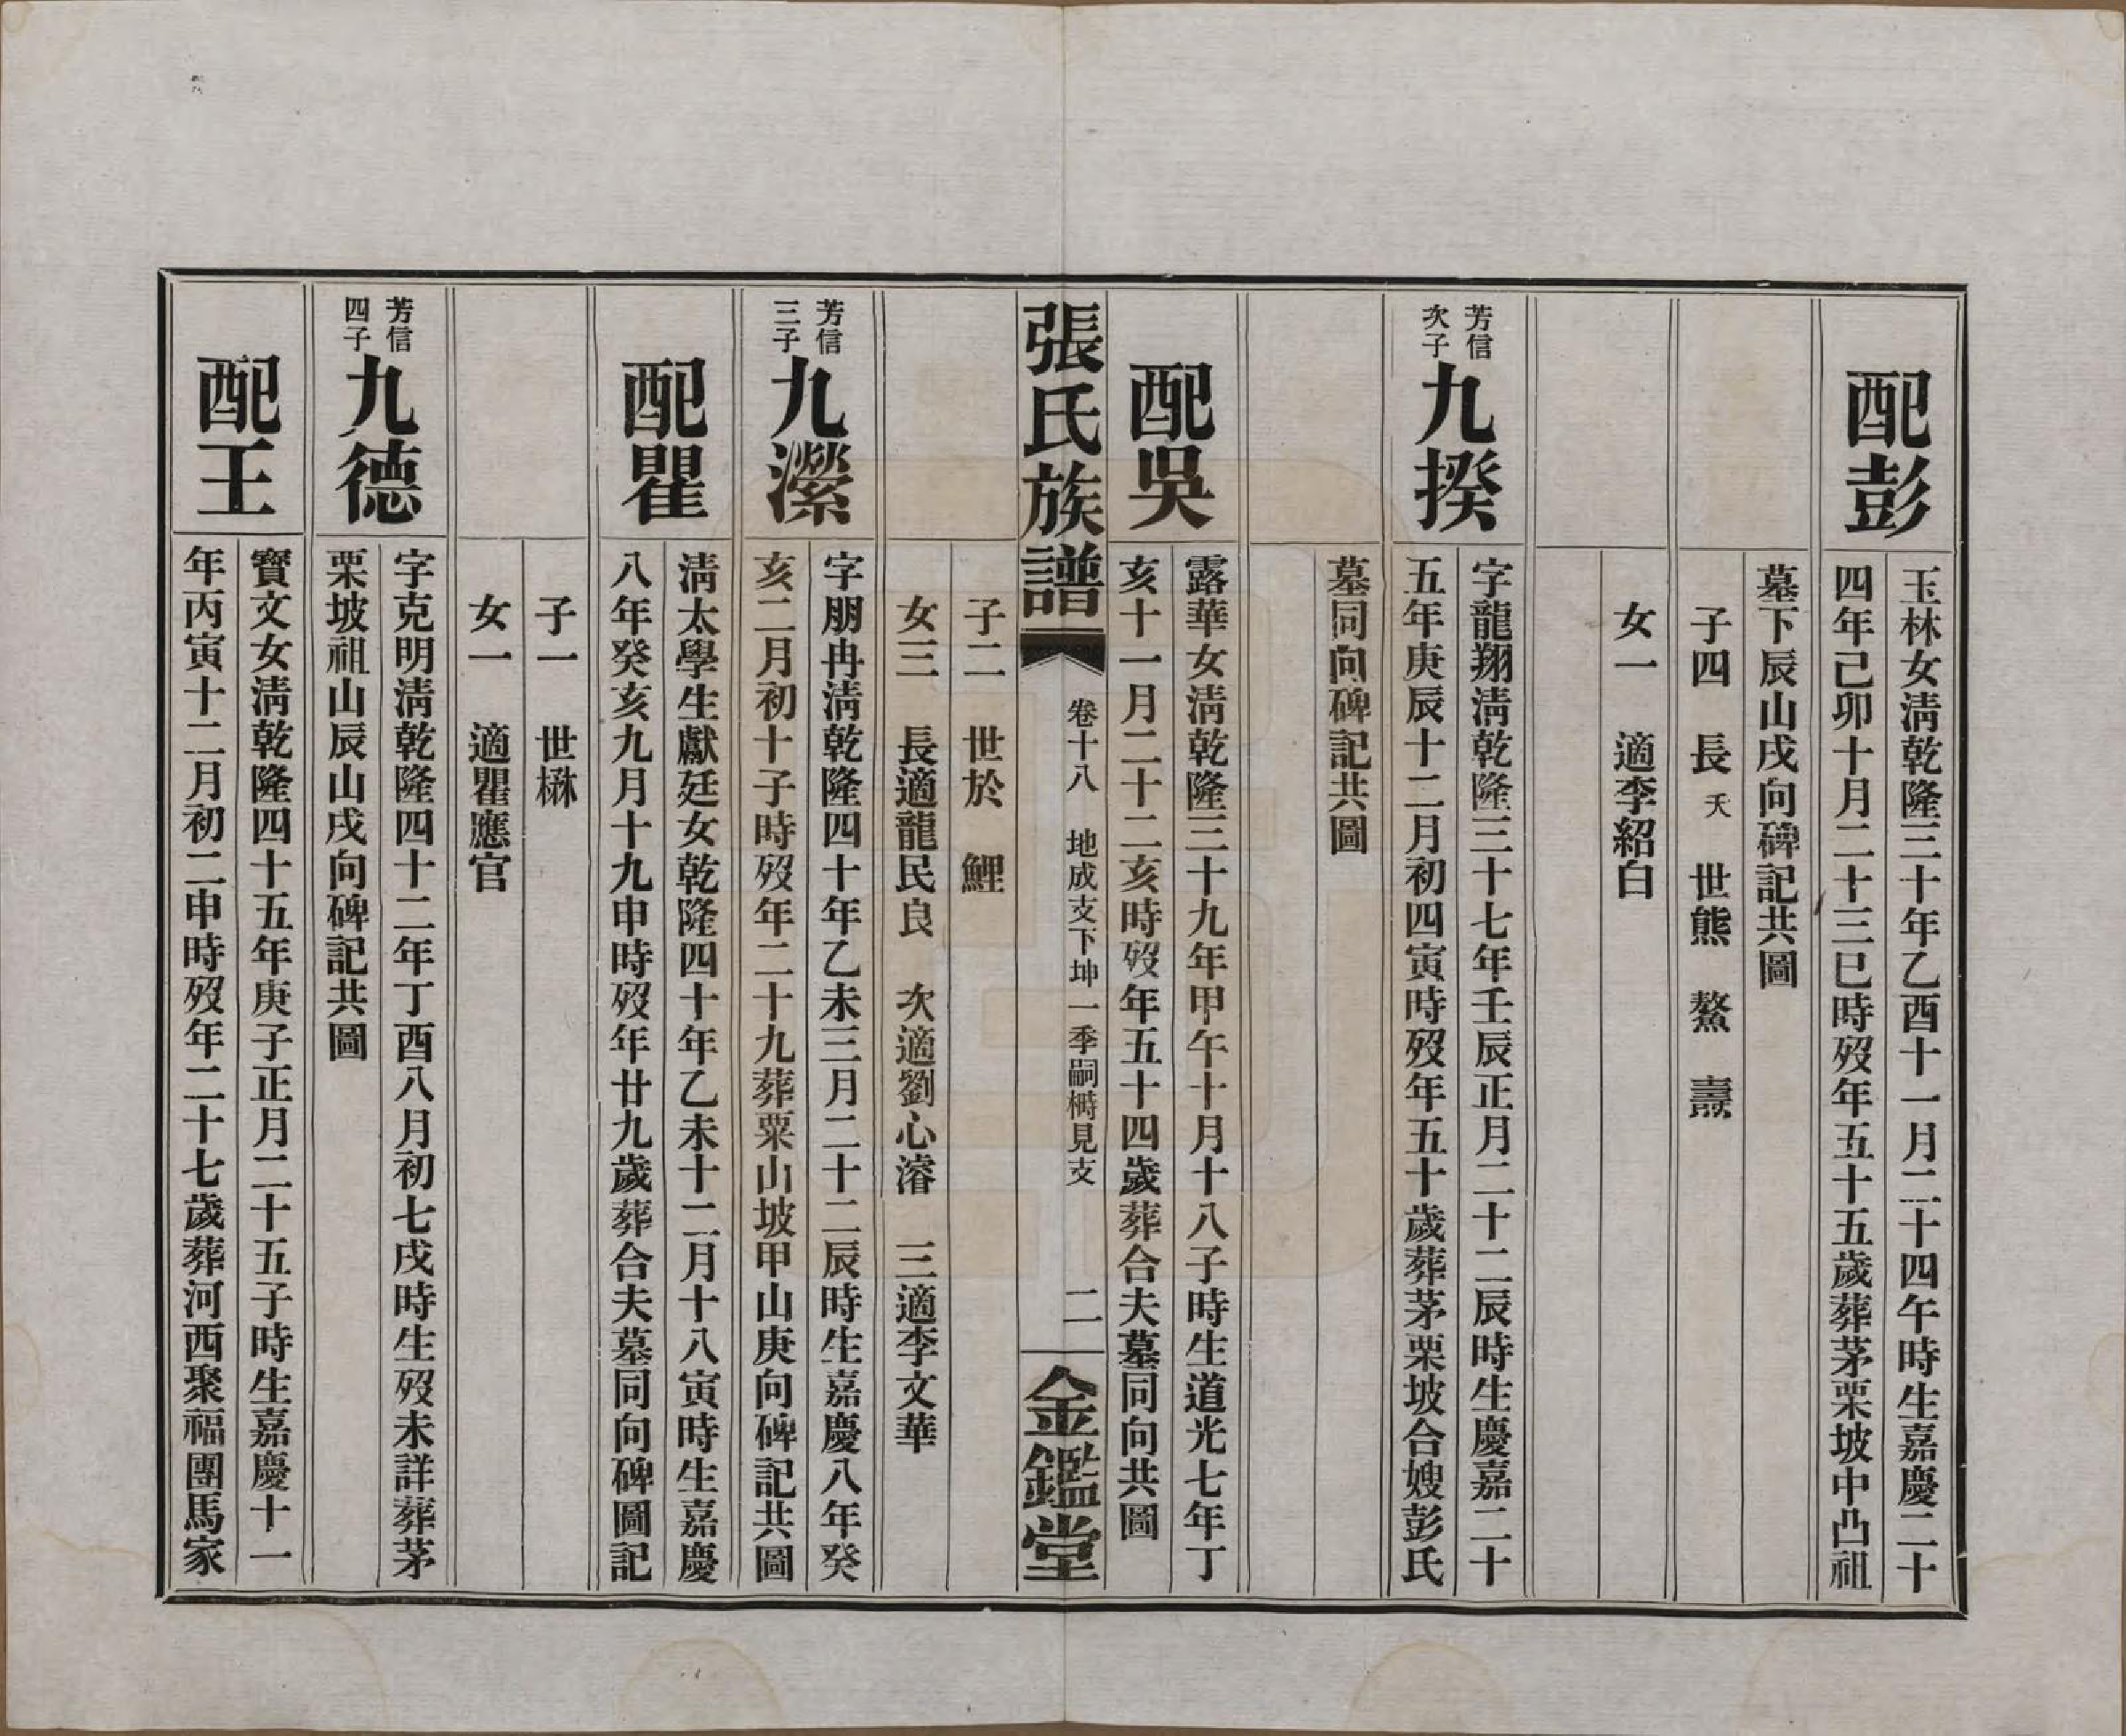 配彭
玉林女淸乾隆三十年乙酉十一月二十四午時生嘉慶二十
四年己卯十月二十三巳時歿年五十五歲葬茅栗坡中凸祖
墓下辰山戌向碑記共圖
子四　長夭　世熊　鰲　燾
女一　適李紹白
芳信
次子
九揆
字龍翔淸乾隆三十七年壬辰正月二十二辰時生慶嘉二十
五年庚辰十二月初四寅時歿年五十歲葬茅栗坡合嫂彭氏
墓同向碑記共圖
配吳
露華女淸乾隆三十九年甲午十月十八子時生道光七年丁
亥十一月二十二亥時歿年五十四歲葬合夫墓同向共圖
張氏族譜
卷十八　地成支下坤一季嗣樹見支
二
金鑑堂
子二　世於　鯉
女三　長適龍民良　次適劉心濬　三適李文華
芳信
三子
九瀠
字朋冉淸乾隆四十年乙未三月二十二辰時生嘉慶八年癸
亥二月初十子時歿年二十九葬粟山坡甲山庚向碑記共圖
配瞿
淸太學生獻廷女乾隆四十年乙未十二月十八寅時生嘉慶
八年癸亥九月十九申時歿年廿九歲葬合夫墓同向碑圖記
子一　世楙
女一　適瞿應官
芳信
四子
九德
字克明淸乾隆四十二年丁酉八月初七戌時生歿未詳葬茅
栗坡祖山辰山戌向碑記共圖
配王
寶文女淸乾隆四十五年庚子正月二十五子時生嘉慶十一
年丙寅十二月初二申時歿年二十七歲葬河西聚福團馬家